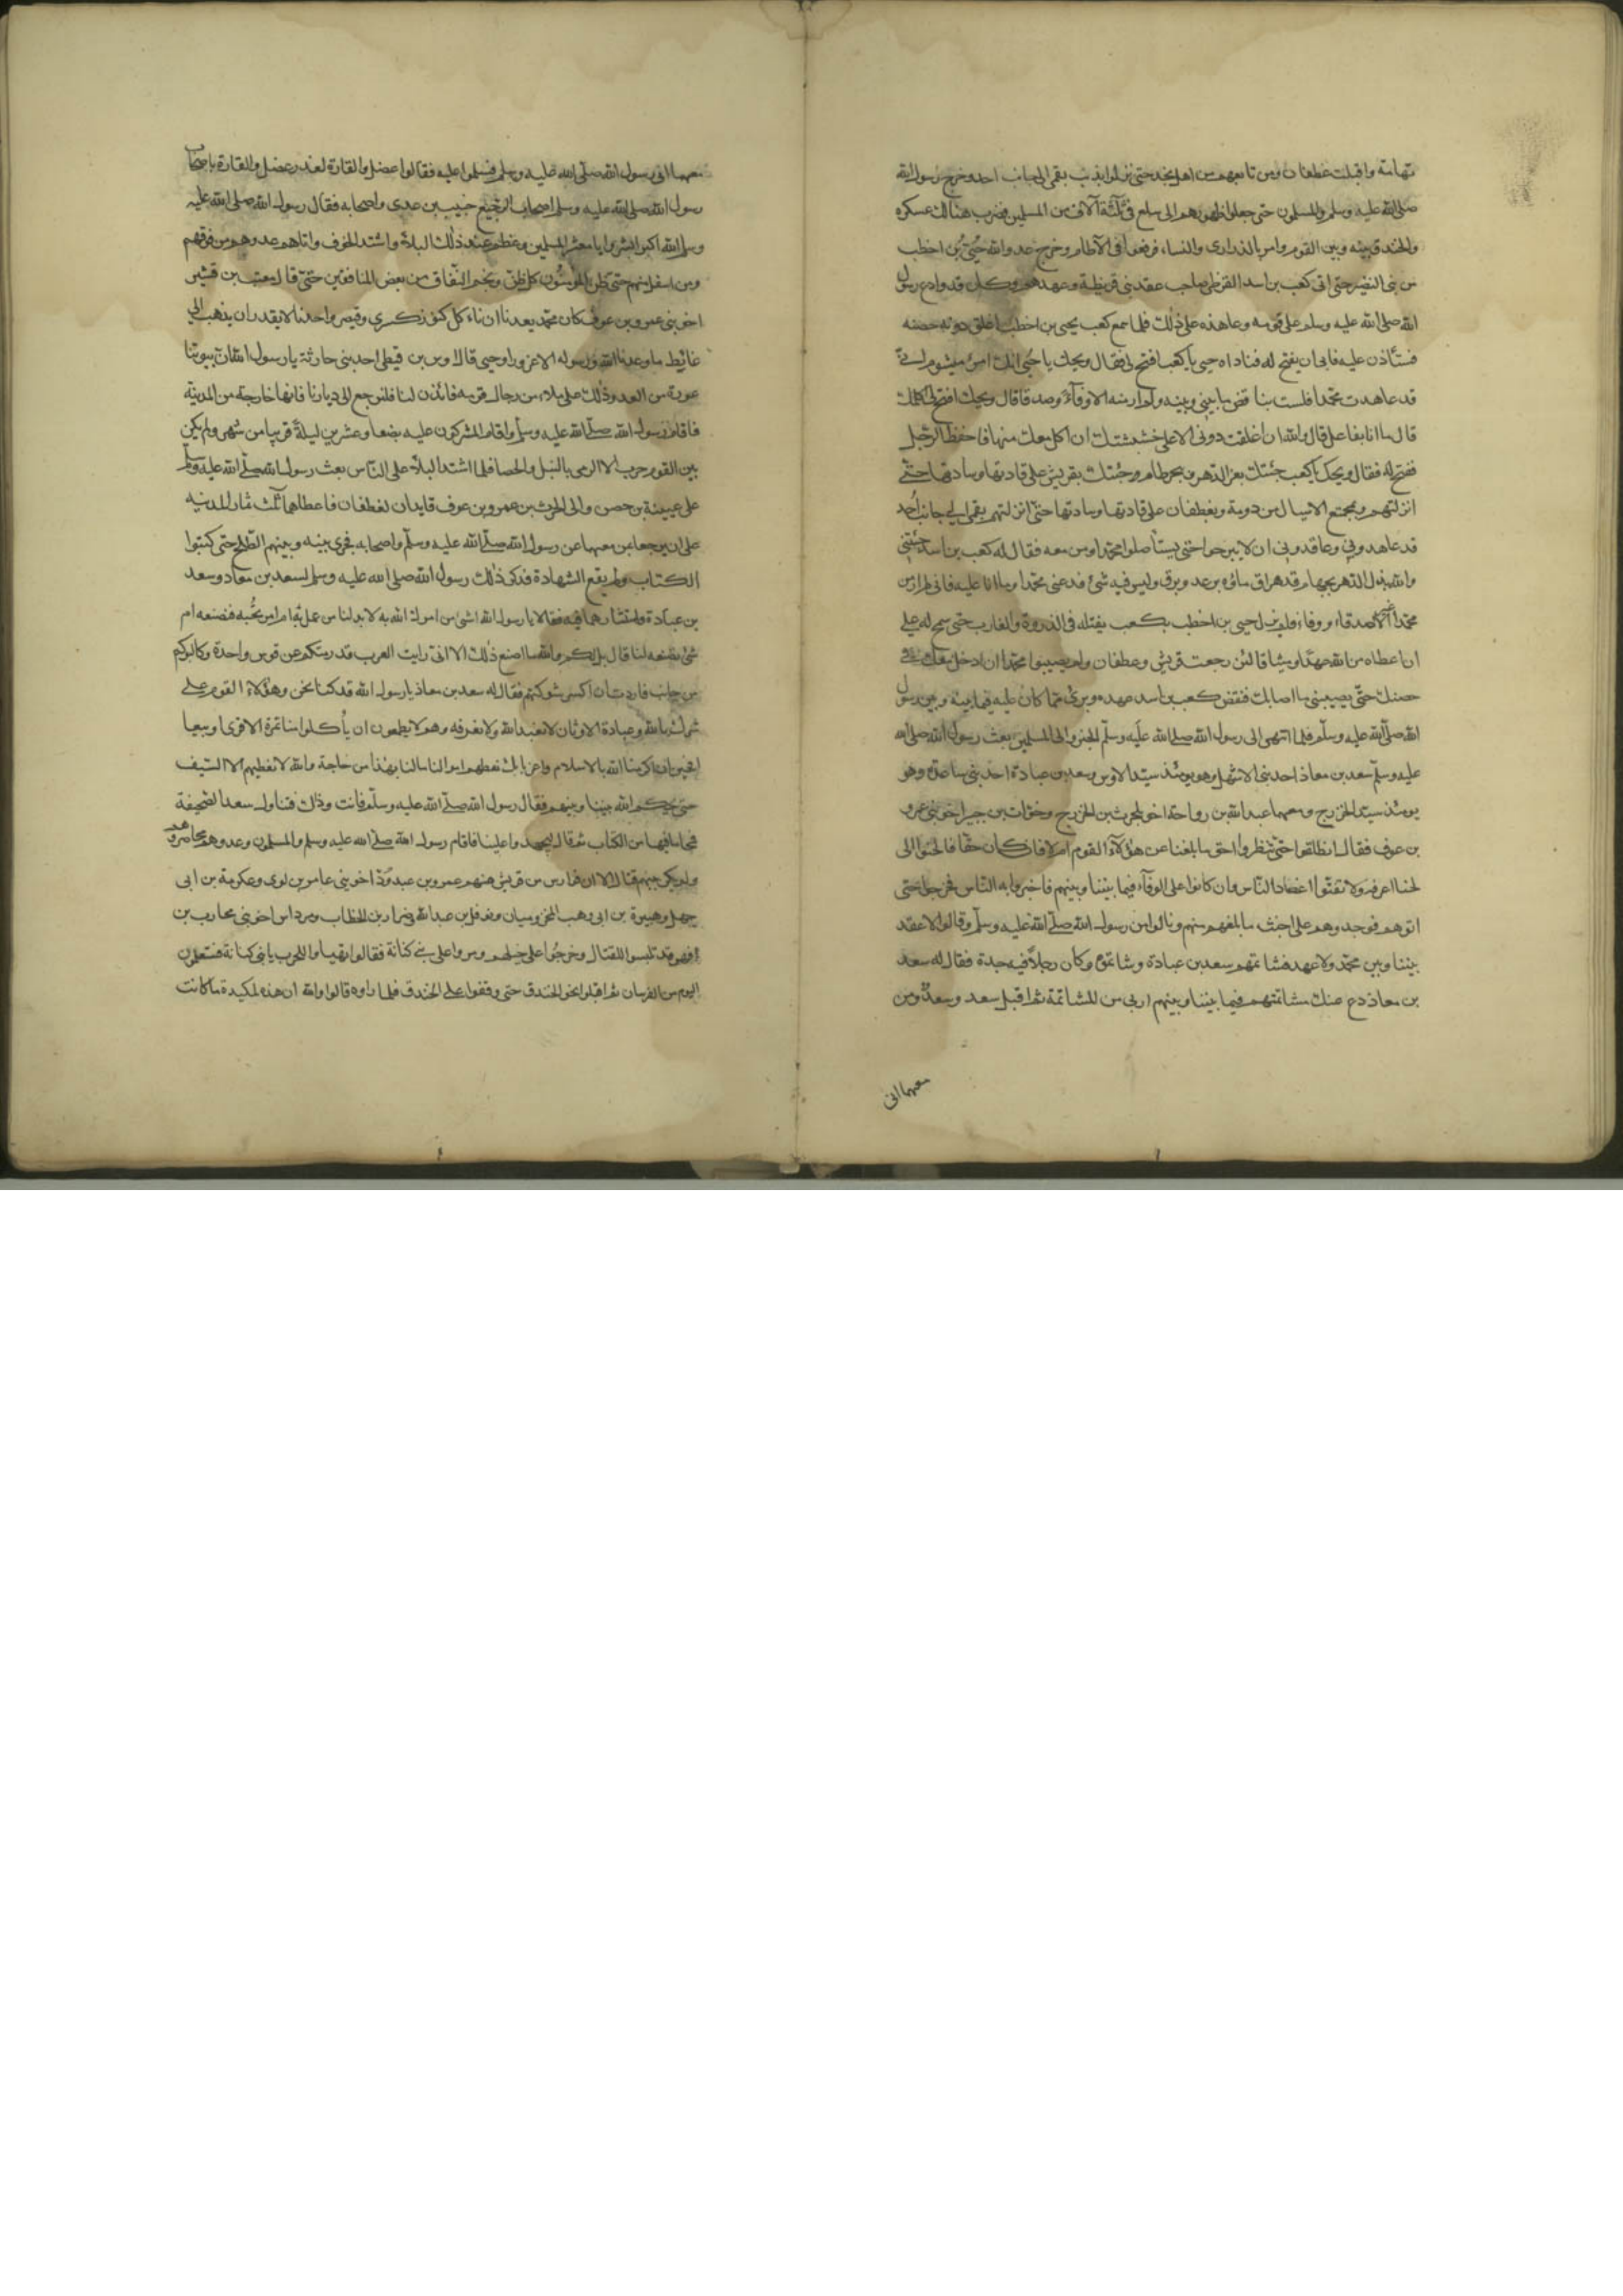 تهامة واقبلت غطفان ومن تابعهم من اهل نجد حتى نزلوا بذنب نقمى الى جانب احد وخرج رسول الله
صلى الله عليه وسلم والمسلمون حتى جعلوا ظهورهم الى سلع فى ثلثة آلاف من المسلمين فضرب هنالك عسكره
والخندق بينه وبين القوم وامر بالذرارى والنساء فرفعوا فى الآطام وخرج عدو الله حيى بن اخطب
من بنى النضير حتى اتى كعب بن اسد القرظى صاحب عقد بنى قريظة وعهدهم وكان قد وادع رسول
الله صلى الله عليه وسلم على قومه وعاهده على ذلك فلما سمع كعب بحيى بن اخطب اغلق دونه حصنه
فستأذن عليه فابى ان يفتح له فناداه حيى يا كعب افتح لى فقال ويحك يا حيى انك امرئ ميشوم انى
قد عاهدت محمدا فلست بناقض ما بينى وبينه ولم ار منه الا وفآء وصدقا قال ويحك افتح لى اكلمك
قال ما انا بفاعل قال والله ان اغلقت دونى الا على خشيشتك ان اكل معك منها فاحفظ الرجل
ففتح له فقال ويحك يا كعب جئتك بعز الدهر وببحر طام جئتك بقريش على قادتها وسادتها حتى
انزلتهم بمجتمع الاسيال من دومة وبغطفان على قادتها وسادتها حتى انزلتهم بنقمى الى جانب احد
قد عاهدونى وعاقدونى ان لا يبرحوا حتى يستأصلوا محمدا ومن معه فقال له كعب بن اسد جئتنى
والله بذل الدهر بجهام قد هراق ماؤه يرعد ويبرق وليس فيه شئ فدعنى محمدا وما انا عليه فانى لم ار من
محمد الا صدقا ووفاء فلم يزل حيى بن اخطب بكعب يفتله فى الذروة والغارب حتى سمح له على
ان اعطاه من الله عهدا وميثاقا لئن رجعت قريش وغطفان ولم يصيبوا محمدا ان ادخل معك فى
حصنك حتى يصيبنى ما اصابك فنقض كعب بن اسد عهده وبرئ مما كان عليه فيما بينه وبين رسول
الله صلى الله عليه وسلم فلما انتهى الى رسول الله صلى الله عليه وسلم الخبر والى المسلمين بعث رسول الله صلى الله
عليه وسلم سعد بن معاذ احد بنى الاشهل وهو يومئذ سيد الاوس وسعد بن عبادة احد بنى ساعدة وهو
يومئذ سيد الخزرج ومعهما عبد الله بن رواحة اخو بلحرث بن الخزرج وخوات بن جبير اخو بنى عمرو
بن عوف فقال انطلقوا حتى تنظروا احق ما بلغنا عن هؤلآء القوم ام لا فان كان حقا فالحنوا الى
لحنا اعرفه ولا تفتوا اعضاد الناس وان كانوا على الوفآء فيما بيننا وبينهم فاجهروا به الناس فخرجوا حتى
اتوهم فوجدوهم على اخبث ما بلغهم منهم ونالوا من رسول الله صلى الله عليه وسلم وقالوا لا عقد
بيننا وبين محمد ولا عهد فشاتمهم سعد بن عبادة وشاتموه وكان رجلا فيه حدة فقال له سعد
بن معاذ دع عنك مشاتمتهم فيما بيننا وبينهم اربى من المشاتمة ثم اقبل سعد وسعد ومن
معهما الى
معهما الى رسول الله صلى الله عليه وسلم فسلموا عليه فقالوا عضل والقارة لغدر عضل والقارة باصحاب
رسول الله صلى الله عليه وسلم اصحاب الرجيع خبيب بن عدى واصحابه فقال رسول الله صلى الله عليه
وسلم الله اكبر ابشروا يا معشر المسلمين وعظم عند ذلك البلآء واشتد الخوف واتاهم عدوهم من فوقهم
ومن اسفل منهم حتى ظن المؤمنون كل ظن ونجم النفاق من بعض المنافقين حتى قال معتب بن قشير
اخو بنى عمرو بن عوف كان محمد يعدنا ان ناكل كنوز كسرى وقيصر واحدنا لا يقدر ان يذهب الى
غائط ما وعدنا الله ورسوله الا غرورا وحى قال اوس بن قيظى احد بنى حارثة يا رسول الله ان بيوتنا
عورة من العدو وذلك على ملاء من رجال قومه فائذن لنا فلنرجع الى ديارنا فانها خارجة من المدينة
فاقام رسول الله صلى الله عليه وسلم واقام المشركون عليه بضعا وعشرين ليلة قريبا من شهر ولم يكن
بين القوم حرب الا الرمى بالنبل والحصا فلما اشتد البلآء على الناس بعث رسول الله صلى الله عليه وسلم
الى عيينة بن حصن والى الحرث بن عمرو بن عوف قايدان لغطفان فاعطاهما ثلث ثمار المدينه
على ان يرجعا بمن معهما عن رسول الله صلى الله عليه وسلم واصحابه فجرى بينه وبينهم الصلح حتى كتبوا
الكتاب ولم يقع الشهادة فذكر ذلك رسول الله صلى الله عليه وسلم لسعد بن معاذ وسعد
بن عبادة واستشارهما فيه فقالا يا رسول الله اشئ من امرك الله به لا بد لنا من عمل به ام امر تحبه فصنعه ام
شئ تصنعه لنا قال بل لكم والله ما اصنع ذلك الا انى رايت العرب قد رمتكم عن قوس واحدة وكالبوكم
من جانب فاردت ان اكسر شوكتهم فقال له سعد بن معاذ يا رسول الله قد كنا نحن وهؤلآء القوم على
شرك بالله وعبادة الاوثان لا نعبد الله ولا نعرفه وهم لا يطمعون ان ياكلوا منا تمرة الا قرى او بيعا
افحين ان اكرمنا الله بالاسلام واعزنا بك نعطهم اموالنا مالنا بهذا من حاجة والله لا نعطيهم الا السيف
حتى يحكم الله بيننا وبينهم فقال رسول الله صلى الله عليه وسلم فانت وذاك فتناول سعد الصحيفة
فمحا ما فيها من الكتاب ثم قال ليجهدوا علينا فاقام رسول الله صلى الله عليه وسلم والمسلمون وعدوهم محاصروهم
ولم يكن بينهم قتال الا ان فوارس من قريش منهم عمرو بن عبد ود اخو بنى عامر بن لوى وعكرمة بن ابى
جهل وهبيرة بن ابى وهب المخزوميان ونوفل بن عبد الله وضرار بن الخطاب ومرداس اخو بنى محارب بن
فهر قد تلبسوا للقتال وخرجوا على خيلهم ومروا على بنى كنانة فقالوا تهياوا للحرب يا بنى كنانة فستعلمون
اليوم من الفرسان ثم اقبلوا نحو الخندق حتى وقفوا على الخندق فلما راوه قالوا والله ان هذه لمكيدة ما كانت